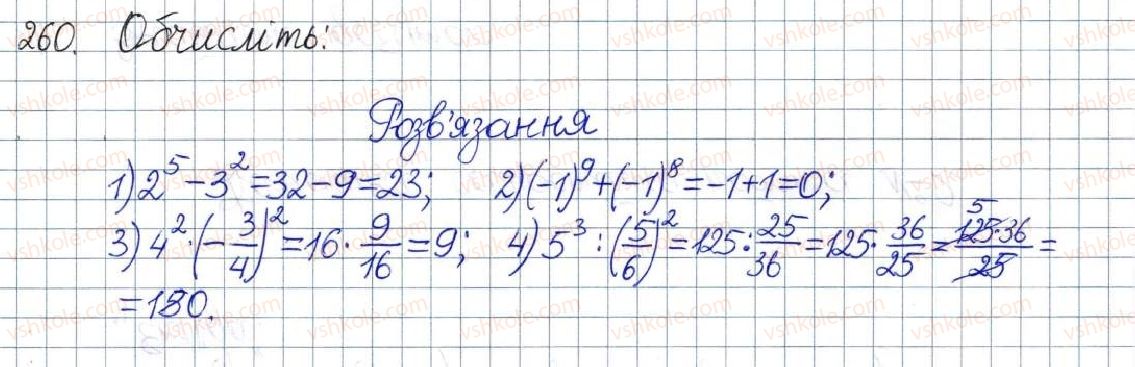 260. Обчисліть:
Розв'язання
1) 2^5 - 3^2 = 32 - 9 = 23; 2) (-1)^9 + (-1)^8 = -1 + 1 = 0;
3) 4^2 · (-3/4)^2 = 16 · 9/16 = 9; 4) 5^3 : (5/6)^2 = 125 : 25/36 = 125 · 36/25 = 5 125·36/25 =
= 180.